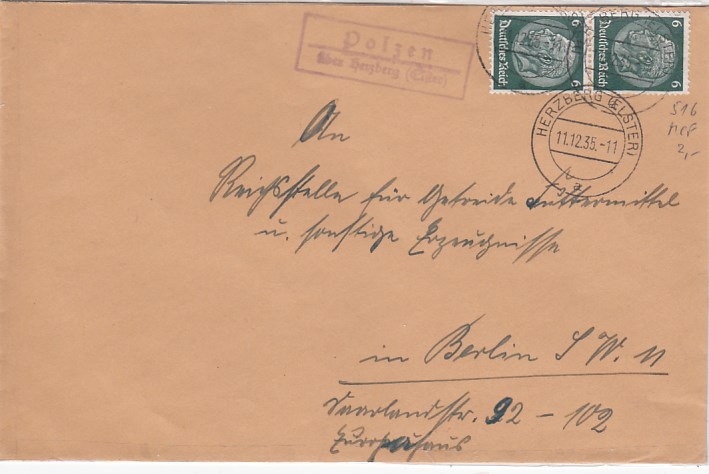 Polzen
über Herzberg (Elster)
6 Deutsches Reich 6
6 Deutsches Reich 6
HERZBERG (ELSTER)
11.12.35.-11
a
516
MeF
2,-
An
Reichsstelle für Getreide Futtermittel
u. sonstige Erzeugnisse
in Berlin S W. 11
Saarlandstr. 92-102
Europahaus